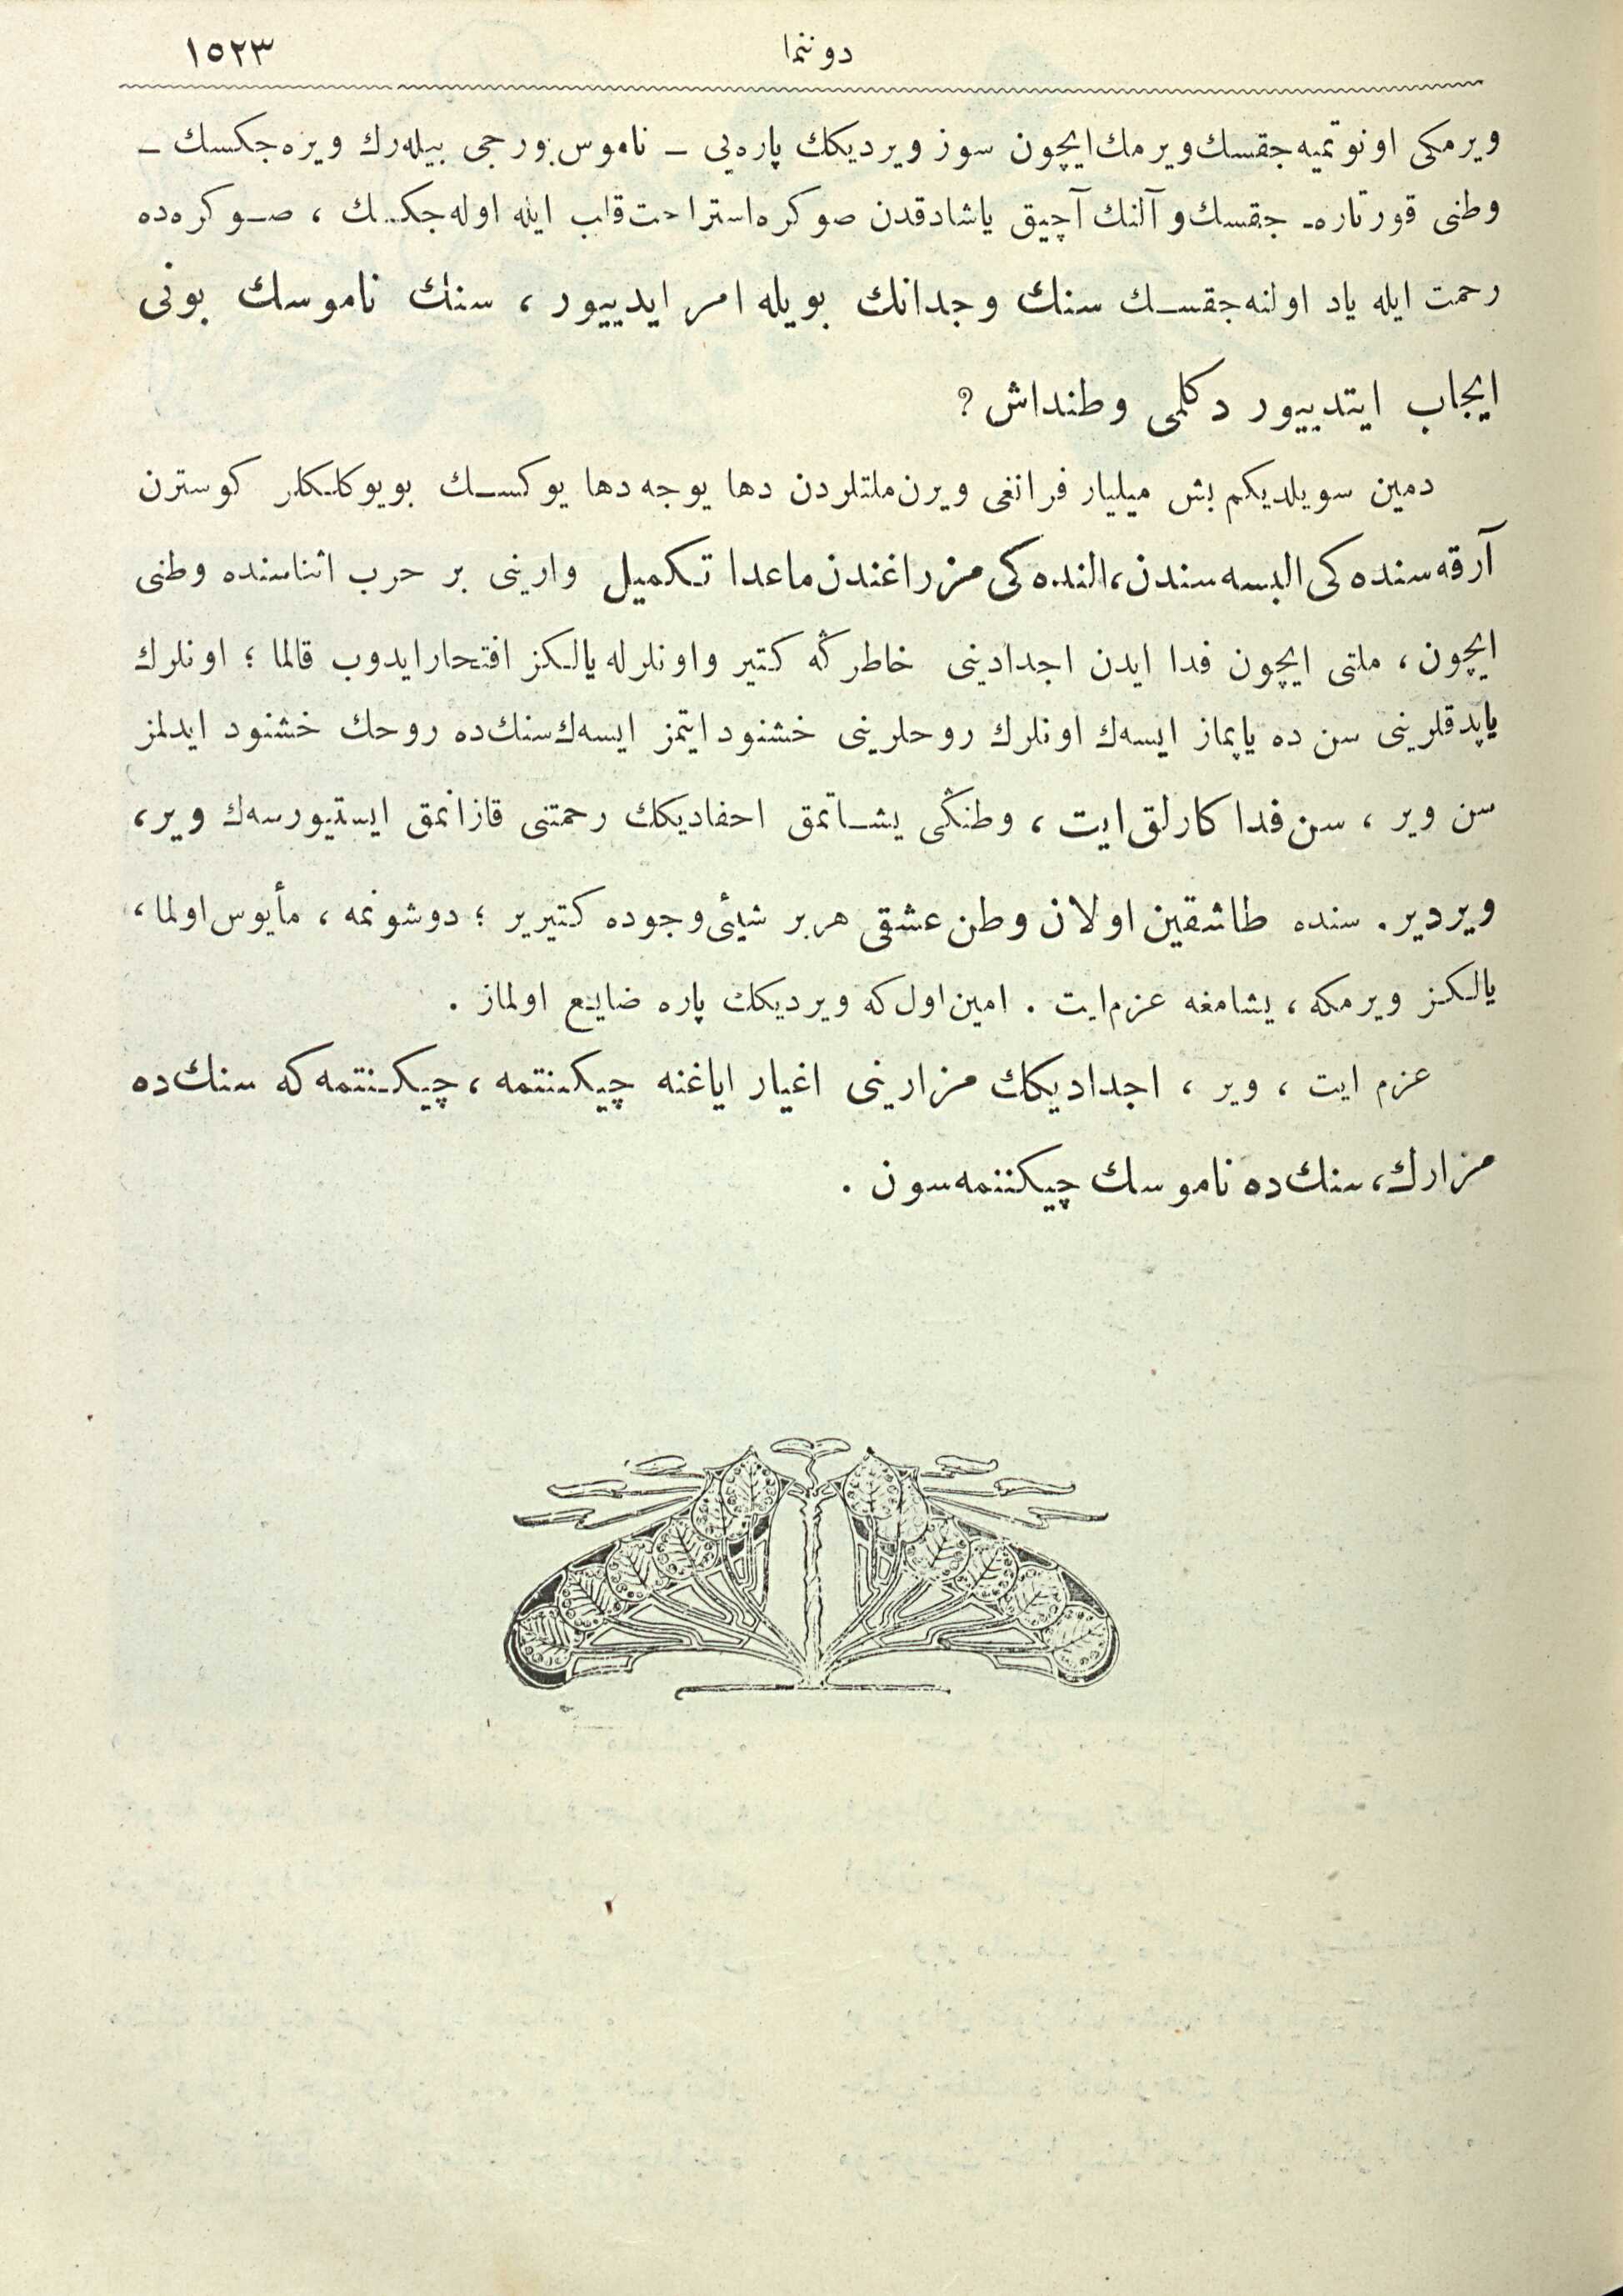 دوننما ١٥٢٣
ويرمكى اونوتميه‌جقسك ويرمك ايچون سوز ويرديكك پاره‌يى ـ ناموس بورجى بيله‌رك ويره‌جكسك ـ
وطنى قورتاره‌ـ جقسك و آلنك آچيق ياشادقدن صوكره استراحت قلب ايله اوله‌جكـك ، صـوكره‌ده
رحمت ايله ياد اولنه‌جقسـك سنك وجدانك بويله امر ايدييور ، سنك ناموسك بونى
ايجاب ايتدييور دكلمى وطنداش ؟
دمين سويلديكم بش ميليار فرانغى ويرن ملتلردن دها يوجه دها يوكسـك بويوكلكلر كوسترن
آرقه‌سنده‌كى البسه‌سندن، النده‌كى مزراغندن ماعدا تكميل وارينى بر حرب اثناسنده وطنى
ايچون ، ملتى ايچون فدا ايدن اجدادينى خاطرڭه كتير واونلرله يالكز افتحار ايدوب قالما ؛ اونلرك
ياپدقلرينى سن ده ياپماز ايسه‌ك اونلرك روحلرينى خشنود ايتمز ايسه‌ك سنك‌ده روحك خشنود ايدلمز
سن وير ، سن فدا كارلق ايت ، وطنڭى يشـاتمق احفاديكك رحمتنى قازانمق ايستيورسه‌ك وير،
ويردير . سنده طاشقين اولان وطن عشقى هربر شيئى وجوده كتيرير ؛ دوشونمه ، مأيوس اولما ،
يالكز ويرمكه ، يشامغه عزم ايت . امين اول كه ويرديكك پاره ضايع اولماز .
عزم ايت ، وير ، اجداديكك مزارينى اغيار اياغنه چيكنتمه ، چيكنتمه كه سنك‌ده
مزارك، سنك‌ده ناموسك چيكننمه‌سون .